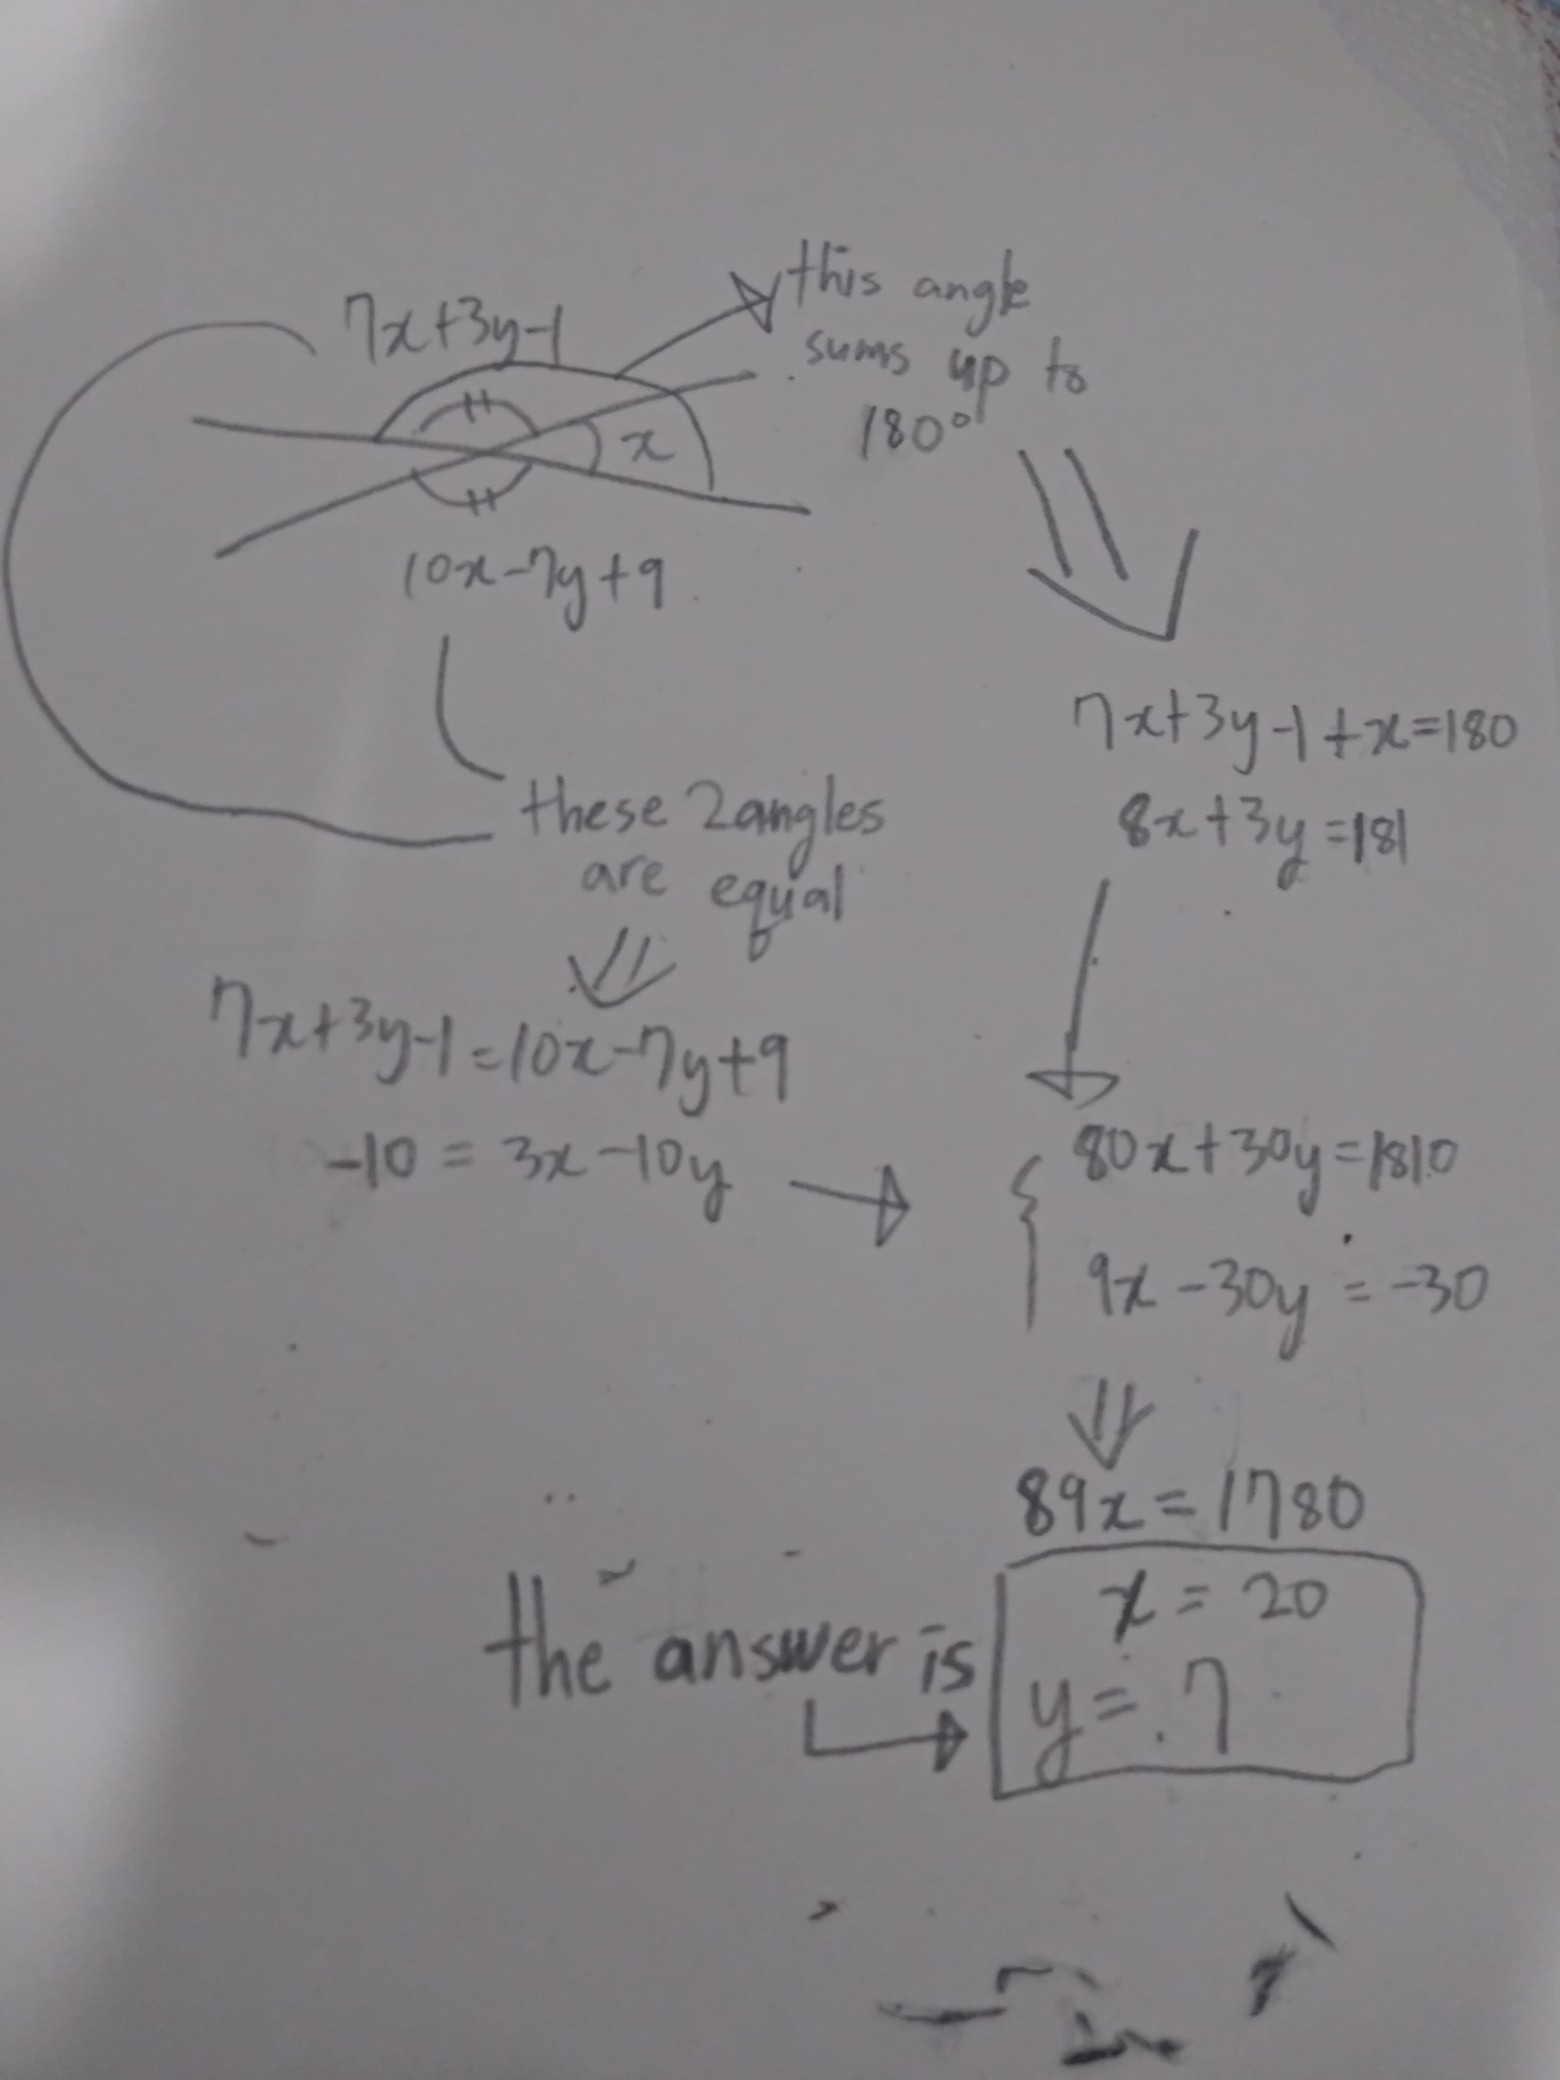 7x+3y-1
this angle
sums up to
180°
x
10x-7y+9
these 2 angles
are equal
7x+3y-1=10x-7y+9
-10 = 3x-10y
7x+3y-1+x=180
8x+3y=181
80x+30y=1810
9x-30y=-30
89x=1780
the answer is
x=20
y=7